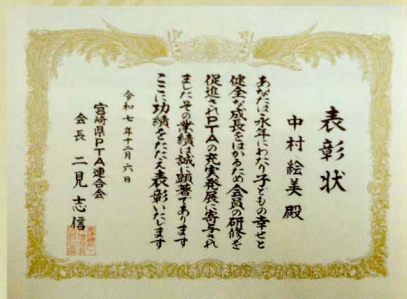 表彰状
中村絵美殿
あなたは永年にわたり子どもの幸せと
健全な成長をはかるため会員の研修を
促進されPTAの充実発展に寄与され
ましたその業績は誠に顕著であります
ここに功績をたたえ表彰いたします
令和七年十二月六日
宮崎県PTA連合会
会長 二見志信